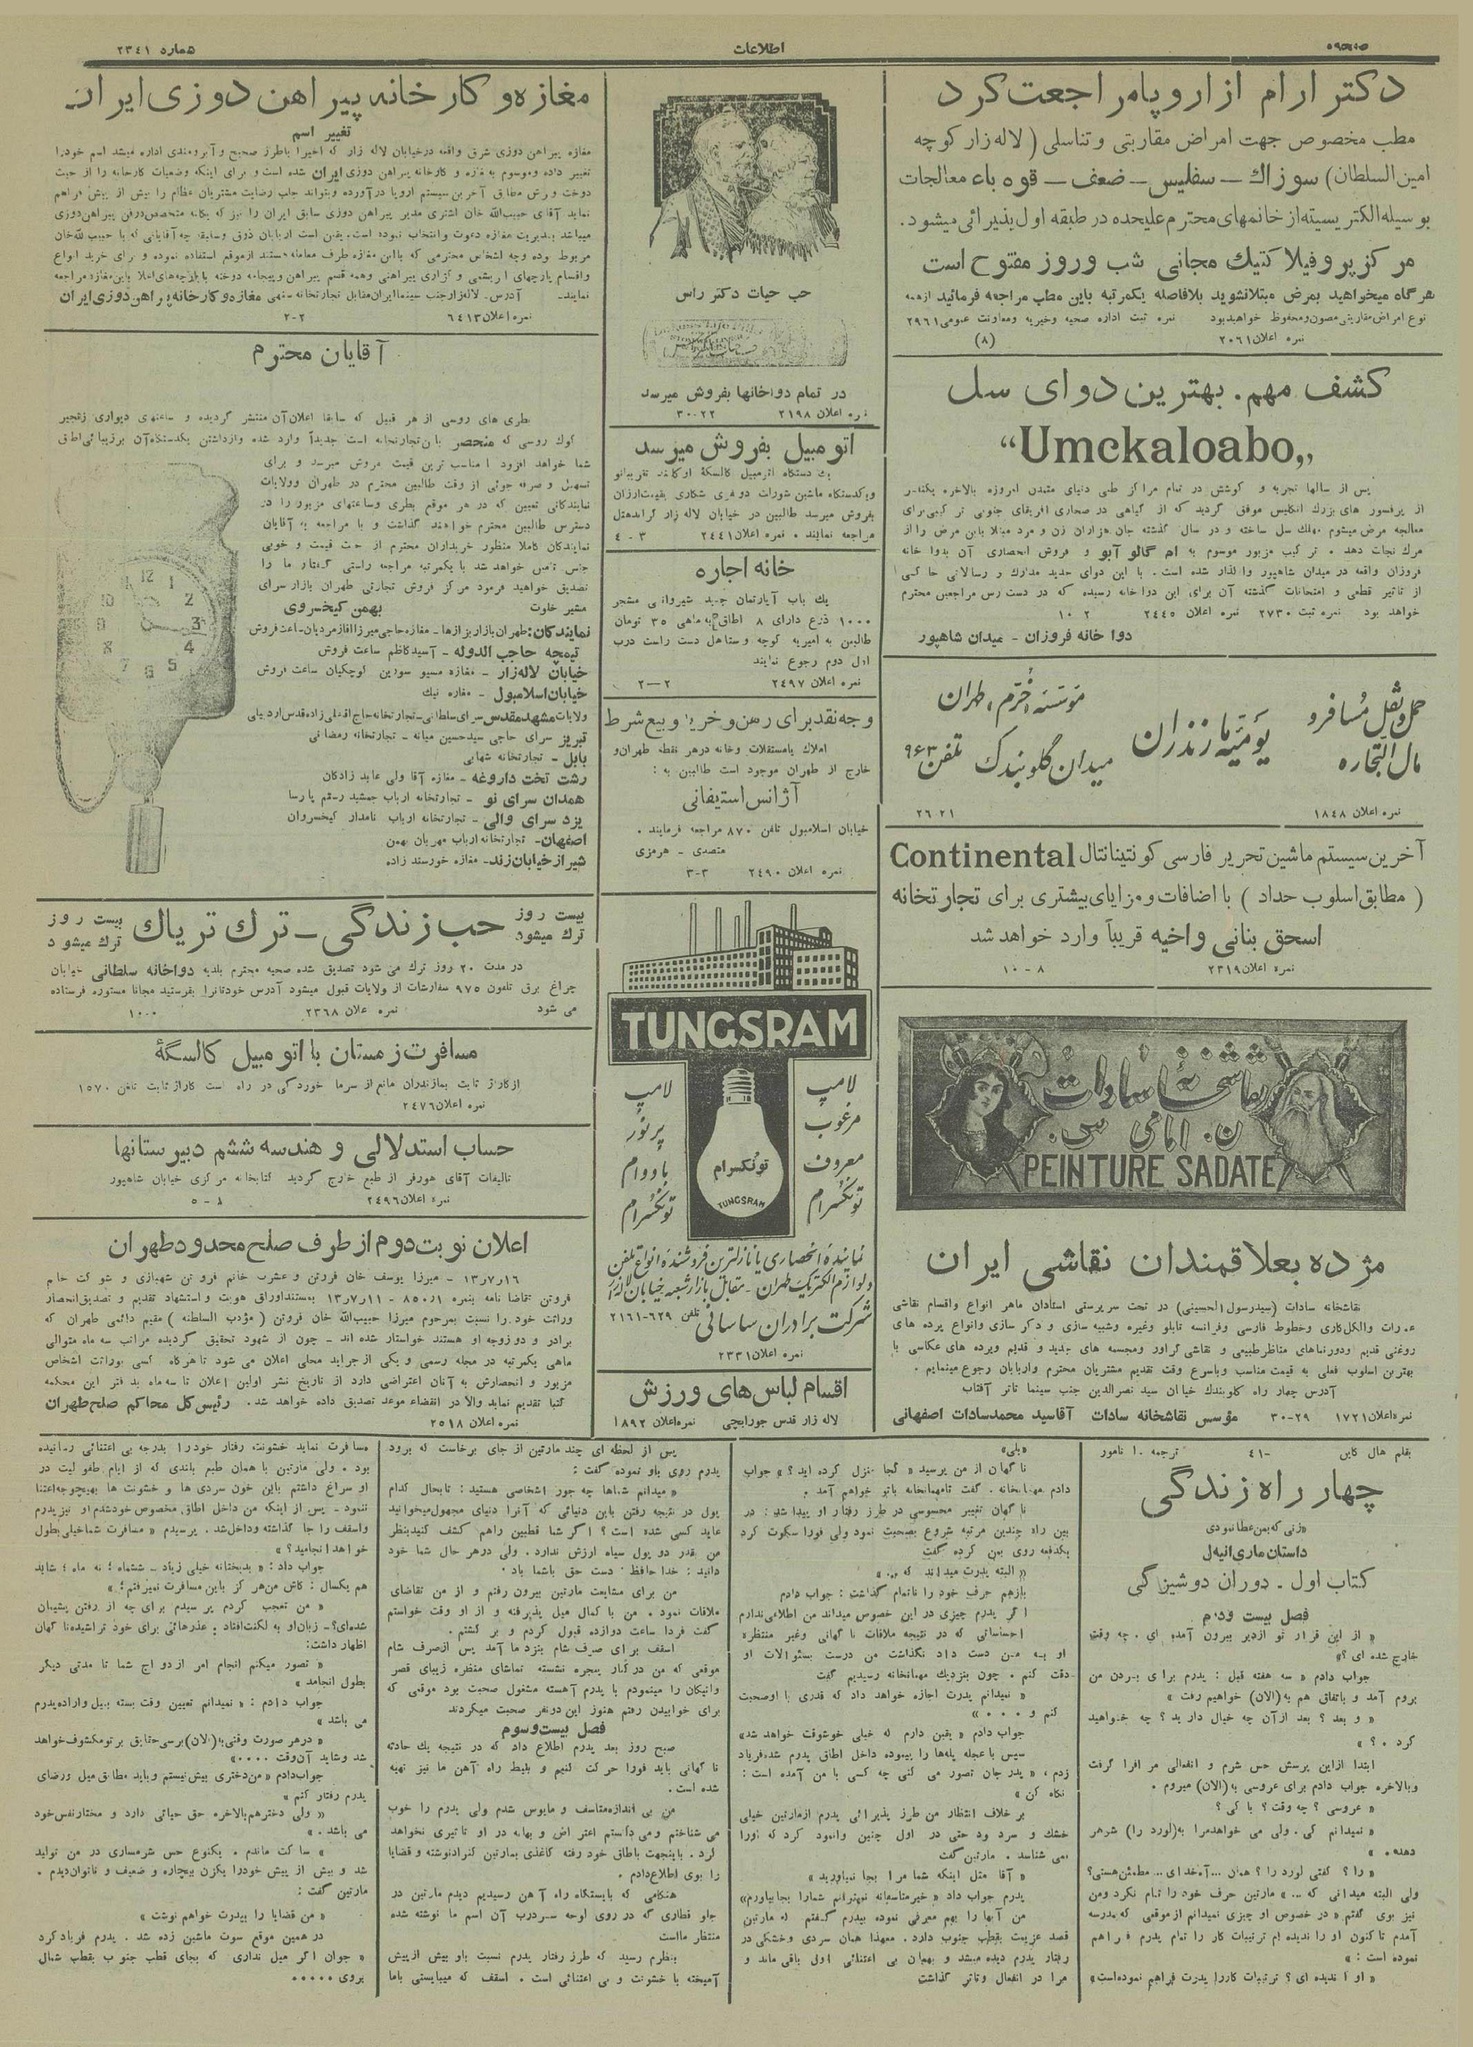 صفحه
اطلاعات
شماره ۲۳٤۱
دکتر ارام از اروپا مراجعت کرد
مطب مخصوص جهت امراض مقاربتی و تناسلی ( لاله زار کوچه
امین السلطان) سوزاك - سفلیس - ضعف - قوه باء معالجات
بوسیله الکتریسیته از خانمهای محترم علیحده در طبقه اول پذیرائی میشود.
مرکز پروفیلاکتیك مجانی شب وروز مفتوح است
هرگاه میخواهید بمرض مبتلا نشوید بلافاصله یکمرتبه باین مطب مراجعه فرمائید از همه
نوع امراض مقاربتی مصون و محفوظ خواهید بود نمره ثبت اداره صحیه وخیریه ومعاونت عمومی ۲۹٦۱
نمره اعلان ۲۰٦۱ (۸)
کشف مهم. بهترین دوای سل
“Umckaloabo„
پس از سالها تجربه و کوشش در تمام مراکز طبی دنیای متمدن امروزه بالاخره یکنفر
از پرفسور های بزرك انگلیس موفق گردید که از گیاهی در صحاری افریقای جنوبی ترکیبی برای
معالجه مرض میشوم مهلك سل ساخته و در سال گذشته جان هزاران زن و مرد مبتلا باین مرض را از
مرك نجات دهد . ترکیب مزبور موسوم به ام گالو آبو و فروش انحصاری آن بدوا خانه
فروزان واقعه در میدان شاهپور واگذار شده است . با این دوای جدید مدارك و رسالاتی حاکی
از تاثیر قطعی و امتحانات گذشته آن برای این دواخانه رسیده که در دست رس مراجعین محترم
خواهد بود نمره ثبت ۲۷۳۰ نمره اعلان ۲٤٤٥ ۲ ۱۰
دوا خانه فروزان - میدان شاهپور
حمل و نقل مسافر و
مال التجاره
یومیه مازندران
مؤسسه خرم ، طهران
میدان گلوبندك تلفن ۹۶۳
نمره اعلان ۱۸٤۸ ۲۱ ۲٦
آخرین سیستم ماشین تحریر فارسی کونتینانتال Continental
( مطابق اسلوب حداد ) با اضافات و مزایای بیشتری برای تجارتخانه
اسحق بنانی و اخیه قریباً وارد خواهد شد
نمره اعلان ۲۳۱۹ ۸ - ۱۰
نقاشخانه سادات
ن. امامی س.
PEINTURE SADATE
مژده بعلاقمندان نقاشی ایران
نقاشخانه سادات (سیدرسول الحسینی) در تحت سرپرستی استادان ماهر انواع واقسام نقاشی
عمارات والکل کاری وخطوط فارسی وفرانسه تابلو وغیره وشبیه سازی و دکر سازی وانواع پرده های
روغنی قدیم ودورنماهای مناظر طبیعی و نقاشی گراور ومجسمه های جدید و قدیم وپرده های عکاسی با
بهترین اسلوب فعلی به قیمت مناسب وباسرع وقت تقدیم مشتریان محترم واربابان رجوع مینمایم .
آدرس چهار راه گلوبندك خیابان سید نصرالدین جنب سینما تاتر آفتاب
نمره اعلان ۱۷۲۱ ۲۹-۳۰ مؤسس نقاشخانه سادات آقاسید محمد سادات اصفهانی
حب حیات دکتر راس
در تمام دواخانها بفروش میرسد
نمره اعلان ۲۱۹۸ ۲۲-۳۰
اتومبیل بفروش میرسد
ویکدستگاه ماشین شورلت دونفری شکاری بقیمت ارزان
بفروش میرسد طالبین در خیابان لاله زار گراندهتل
مراجعه نمایند . نمره اعلان ۲٤٤۱ ۳ - ٤
خانه اجاره
یك باب آپارتمان جدید شیروانی مشجر
۱۰۰۰ ذرع دارای ۸ اطاق به ماهی ۳۵ تومان
طالبین به امیریه کوچه وستاهل دست راست درب
اول دوم رجوع نمایند
نمره اعلان ۲٤۹۷ ۲-۲
وجه نقد برای رهن و خرید و بیع شرط
املاك بامستغلات وخانه درهر نقطه طهران و
خارج از طهران موجود است طالبین به :
آژانس استیفانی
خیابان اسلامبول تلفن ۸۷۰ مراجعه فرمایند .
متصدی - هرمزی
نمره اعلان ۲٤۹۰ ۳-۳
TUNGSRAM
لامپ
مرغوب
معروف
تونگسرام
لامپ
پر نور
با دوام
تونگسرام
تونگسرام
TUNGSRAM
نماینده انحصاری با نازلترین فروشنده انواع تلفن
ولوازم الکتریك طهران - مقابل بازار شعبه خیابان لاله زار
شرکت برادران ساسانی تلفن ۶۲۹-۲۱۶۱
نمره اعلان ۲۳۳۱
اقسام لباس های ورزش
لاله زار قدس جورابچی نمره اعلان ۱۸۹۲
مغازه و کارخانه پیراهن دوزی ایران
تغییر اسم
مغازه پیراهن دوزی شرق واقعه درخیابان لاله زار که اخیراً باطرز صحیح و آبرومندی اداره میشد اسم خودرا
تغییر داده وموسوم به مغازه و کارخانه پیراهن دوزی ایران شده است و برای اینکه وضعیات کارخانه را از حیث
دوخت و برش مطابق آخرین سیستم اروپا درآورده وبتواند جلب رضایت مشتریان عظام را بیش از پیش فراهم
نماید آقای حبیب الله خان اشتری مدیر پیراهن دوزی سابق ایران را نیز که یگانه متخصص درفن پیراهن دوزی
میباشد بمدیریت مغازه دعوت وانتخاب نموده است. یقین است اربابان ذوق وسلیقه چه آقایانی که با حبیب الله خان
مربوط بوده وچه اشخاص محترمی که بااین مغازه طرف معامله هستند ازموقع استفاده نموده و برای خرید انواع
واقسام پارچهای ابریشمی و گزاری پیراهنی وهمه قسم پیراهن وپیجامه دوخته با پارچه های اعلا باین مغازه مراجعه
نمایند. آدرس. لاله زار جنب سینما ایران مقابل تجارتخانه - نهی مغازه و کارخانه پیراهن دوزی ایران
نمره اعلان ٦٤۱۳ ۲-۲
آقایان محترم
بطری های روسی از هر قبیل که سابقا اعلان آن منتشر گردیده و ساعتهای دیواری زنجیر
کوك روسی که منحصر باین تجارتخانه است جدیداً وارد شده وازداشتن یکدستگاه آن برزیبائی اطاق
شما خواهد افزود
تسهیل و صرفه جوئی از وقت طالبین محترم در طهران وولایات
نمایندگانی تعیین که در هر موقع بطری وساعتهای مزبور را در
دسترس طالبین محترم خواهند گذاشت و با مراجعه به آقایان
نمایندگان کاملا منظور خریداران محترم از حیث قیمت و خوبی
جنس تامین خواهد شد با یکمرتبه مراجعه راستی گفتار ما را
تصدیق خواهید فرمود مرکز فروش تجارتی طهران بازار سرای
مشیر خلوت بهمن کیخسروی
نمایندگان: طهران بازار بزازها - مغازه حاجی میرزا آقاز مردیان - ساعت فروش
تیمچه حاجب الدوله - آسید کاظم ساعت فروش
خیابان لاله زار - مغازه مسیو سورین لوچکیان ساعت فروش
خیابان اسلامبول - مغازه نیك
تبریز سرای حاجی سید حسین میانه - تجارتخانه رمضانی
بابل - تجارتخانه شهابی
رشت تخت داروغه - مغازه آقا ولی عابد زادگان
همدان سرای نو - تجارتخانه ارباب جمشید رستم پارسا
یزد سرای والی - تجارتخانه ارباب نامدار کیخسروان
اصفهان - تجارتخانه ارباب مهربان بهمن
شیراز خیابان زند - مغازه خورسند زاده
12 1 2 3 4 5 6 7 8
بیست روز ترك میشود
حب زندگی - ترك تریاك
بیست روز ترك میشود
در مدت ۲۰ روز ترك می شود تصدیق شده صحیه محترم بلدیه دواخانه سلطانی خیابان
چراغ برق تلفون ۹۷۵ سفارشات از ولایات قبول میشود آدرس خودتانرا بفرستید مجانا مستوره فرستاده
می شود نمره اعلان ۲۳٦۸
مسافرت زمستان با اتومبیل کالسگۀ
نمره اعلان ۲٤۷٦
حساب استدلالی و هندسه ششم دبیرستانها
تالیفات آقای هورفر از طبع خارج گردید کتابخانه مرکزی خیابان شاهپور
نمره اعلان ۲٤۹٦ ۸ - ۵
اعلان نوبت دوم از طرف صلح محدود طهران
۱۳٫۷٫۱٦ - میرزا یوسف خان فروتن و عشرت خانم فروتن شهبازی و شوکت خانم
فروتن تقاضا نامه بنمره ۸۵۰٫۱ - ۱۳٫۷٫۱۱ بمستند اوراق هویت واستشهاد تقدیم و تصدیق انحصار
وراثت خود را نسبت بمرحوم میرزا حبیب الله خان فروتن ( مؤدب السلطنه ) مقیم دائمی طهران که
برادر و دو زوجه او هستند خواستار شده اند - چون از شهود تحقیق گردیده مراتب سه ماه متوالی
ماهی یکمرتبه در مجله رسمی و یکی از جراید محلی اعلان می شود تا هرگاه کسی بوراثت اشخاص
مزبور و انحصارش به آنان اعتراضی دارد از تاریخ نشر اولین اعلان تا سه ماه بدفتر این محکمه
کتبا تقدیم نماید والا در انقضاء موعد تصدیق داده خواهد شد. رئیس کل محاکم صلح طهران
نمره اعلان ۲۵۱۸
بقلم هال کاین -٤۱ ترجمه ۱. نامور
چهار راه زندگی
«زنی که بمن عطا نمودی»
داستان ماری انیل
کتاب اول - دوران دوشیزگی
فصل بیست ودوم
« از این قرار تو ازدیر بیرون آمده ای . چه وقت
خارج شده ای ؟»
جواب دادم « سه هفته قبل : پدرم برای بردن من
بروم آمد و باتفاق هم به (الان) خواهیم رفت »
« و بعد ؟ بعد ازآن چه خیال دارید ؟ چه خواهید
کرد . ؟ »
ابتدا ازاین پرسش حس شرم و انفعالی مر افرا گرفت
وبالاخره جواب دادم برای عروسی به (الان) میروم .
« عروسی ؟ چه وقت ؟ با کی ؟
« نمیدانم کی. ولی می خواهد مرا به (لورد را) شوهر
دهد. »
« را ؟ گفتی لورد را ؟ همان ... آه خدای ... مطمئن هستی؟
ولی البته میدانی که ... » مارتین حرف خود را تمام نکرد ومن
نیز بوی گفتم « در خصوص او چیزی نمیدانم از موقعی که مدرسه
آمدم تا کنون او را ندیده ام ترتیبات کار را تمام پدرم فراهم
نموده است : »
« او را ندیده ای ؟ ترتیبات کاررا پدرت فراهم نموده است»
«بلی»
ناگهان از من پرسید « کجا منزل کرده اید ؟ » جواب
دادم مهمانخانه . گفت تامهمانخانه باتو خواهم آمد .
ناگهان تغییر محسوسی در طرز رفتار او پیدا شد : در
بین راه چندین مرتبه شروع بصحبت نمود ولی فورا سکوت کرد
یکدفعه روی بمن کرده گفت
« البته پدرت میداند که ... »
بازهم حرف خود را ناتمام گذاشت : جواب دادم
اگر پدرم چیزی در این خصوص میداند من اطلاعی ندارم
احساساتی که در نتیجه ملاقات ناگهانی وغیر منتظره
او به من دست داد نگذاشت من درست بسئوالات او
دقت کنم . چون بنزدیك مهمانخانه رسیدیم گفت
« نمیدانم پدرت اجازه خواهد داد که قدری با اوصحبت
کنم و ... »
جواب دادم « یقین دارم که خیلی خوشوقت خواهد شد»
سپس با عجله پله ها را پیموده داخل اطاق پدرم شده فریاد
زدم ، « پدر جان تصور می کنی چه کسی با من آمده است :
نگاه کن »
بر خلاف انتظار من طرز پذیرائی پدرم ازمارتین خیلی
خشك و سرد بود حتی در اول چنین وانمود کرد که اورا
نمی شناسد . مارتین گفت
« آقا مثل اینکه شما مرا بجا نمیاورید »
پدرم جواب داد « خیر متاسفانه نمیتوانم شمارا بجا بیاورم»
من آنها را بهم معرفی نموده بپدرم گفتم که مارتین
قصد عزیمت بقطب جنوب دارد . معهذا همان سردی وخشکی در
رفتار پدرم دیده میشد و بهمان بی اعتنائی اولی باقی ماند و
مرا در انفعال وتاثر گذاشت
پس از لحظه ای چند مارتین از جای برخاست که برود
پدرم روی باو نموده گفت :
« میدانم شماها چه جور اشخاصی هستید : تابحال کدام
پول در نتیجه رفتن باین دنیائی که آنرا دنیای مجهول میخوانید
عاید کسی شده است ؟ اگر شما قطبین راهم کشف کنید بنظر
من بقدر دو پول سیاه ارزش ندارد . ولی درهر حال شما خود
دانید : خدا حافظ . دست حق باشما باد .
من برای مشایعت مارتین بیرون رفتم و از من تقاضای
ملاقات نمود . من با کمال میل پذیرفته و از او وقت خواستم
گفت فردا ساعت دوازده قبول کردم و بر گشتم .
اسقف برای صرف شام بنزد ما آمد پس ازصرف شام
موقعی که من در کنار پنجره نشسته تماشای منظره زیبای قصر
واتیکان را مینمودم با پدرم آهسته مشغول صحبت بود موقعی که
برای خوابیدن رفتم هنوز این دونفر صحبت میکردند
فصل بیست وسوم
صبح روز بعد پدرم اطلاع داد که در نتیجه یك حادثه
ناگهانی باید فورا حرکت کنیم و بلیط راه آهن ما نیز تهیه
شده است .
من بی اندازه متاسف و مایوس شدم ولی پدرم را خوب
می شناختم ومی دانستم اعتراض و بهانه در او تاثیری نخواهد
کرد . باینجهت باطاق خود رفته کاغذی بمارتین کنراد نوشته و قضایا
را بوی اطلاع دادم .
هنگامی که بایستگاه راه آهن رسیدیم دیدم مارتین در
جلو قطاری که در روی لوحه سردرب آن اسم ما نوشته شده
منتظر مااست
بنظرم رسید که طرز رفتار پدرم نسبت باو بیش از پیش
آمیخته با خشونت و بی اعتنائی است . اسقف که میبایستی باما
مسافرت نماید خشونت رفتار خودرا بدرجه بی اعتنائی رسانیده
بود . ولی مارتین با همان طبع بلندی که از ایام طفولیت در
او سراغ داشتم باین خون سردی ها و خشونت ها بهیچوجه اعتنا
ننمود - پس از اینکه من داخل اطاق مخصوص خود شدم او نیز پدرم
واسقف را جا گذاشته وداخل شد. پرسیدم « مسافرت شما خیلی بطول
خواهد انجامید؟ »
جواب داد : « بدبختانه خیلی زیاد - ششماه ؛ نه ماه ؛ شاید
هم یکسال : کاش من هر گز باین مسافرت نمیرفتم؛ »
« من تعجب کردم پرسیدم برای چه از رفتن پشیمان
شده ای؟ - زبان او به لکنت افتاد ، عذرهائی برای خود تراشیده ناگهان
اظهار داشت :
« تصور میکنم انجام امر ازدواج شما تا مدتی دیگر
بطول انجامد »
جواب دادم : « نمیدانم تعیین وقت بسته بمیل واراده پدرم
می باشد »
« درهر صورت وقتی به (الان) برسی حقایق بر تو مکشوف خواهد
شد وشاید آن وقت ....»
جواب دادم « من دختری بیش نیستم و باید مطابق میل ورضای
پدرم رفتار کنم »
« ولی دختر هم بالاخره حق حیاتی دارد و مختار نفس خود
می باشد . »
« ساکت ماندم . یکنوع حس شرمساری در من تولید
شد و بیش از پیش خودرا یکزن بیچاره و ضعیف و ناتوان دیدم .
مارتین گفت :
« من قضایا را بپدرت خواهم نوشت »
در همین موقع سوت ماشین زده شد . پدرم فریاد کرد
« جوان اگر میل نداری که بجای قطب جنوب بقطب شمال
بروی .....